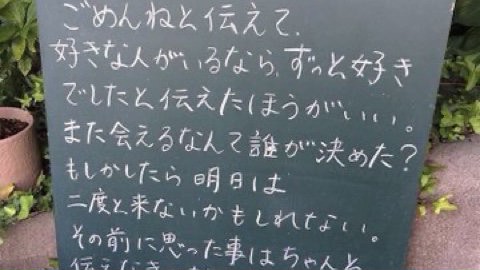 ごめんねと伝えて、
好きな人がいるなら、ずっと好き
でしたと伝えたほうがいい。
また会えるなんて誰が決めた？
もしかしたら明日は
二度と来ないかもしれない。
その前に思った事はちゃんと